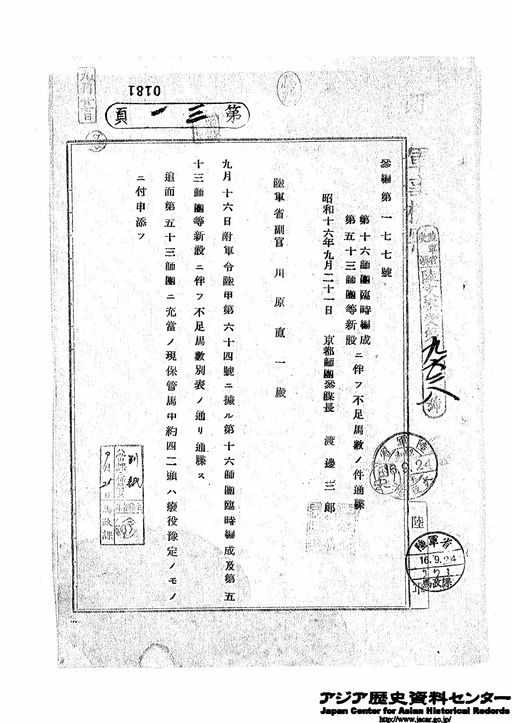 0181
第三一頁
參編第一七七號
第十六師團臨時編成
第五十三師團等新設
ニ伴フ不足馬數ノ件通牒
昭和十六年九月二十一日　京都師團參謀長　渡邊三郎
陸軍省副官　川原直一殿
九月十六日附軍令陸甲第六十四號ニ據ル第十六師團臨時編成及第五
十三師團等新設ニ伴フ不足馬數別表ノ通リ通牒ス
追而第五十三師團ニ充當ノ現保管馬中約四二頭ハ癈役豫定ノモノ
ニ付申添フ
陸軍省
16.9.24
馬政課
別紙
アジア歴史資料センター
Japan Center for Asian Historical Records
http://www.jacar.go.jp/